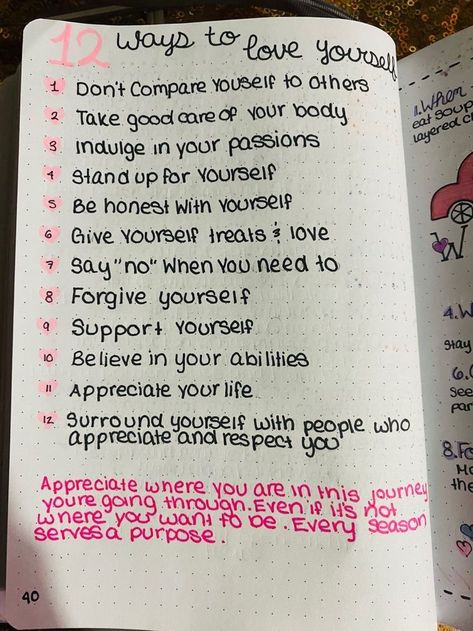 12 ways to love yourself
1 Don't Compare youself to others
2 Take good care of your body
3 Indulge in your passions
4 Stand up for yourself
5 Be honest with yourself
6 Give yourself treats & love
7 Say "no" when you need to
8 Forgive yourself
9 Support yourself
10 Believe in your abilities
11 Appreciate your life
12 Surround yourself with people who
appreciate and respect you
Appreciate where you are in this journey
you're going through. Even if it's not
where you want to be. Every season
serves a purpose.
40
1. When
eat soup
layered
4. W
stay
6.
see
8. Fo
the